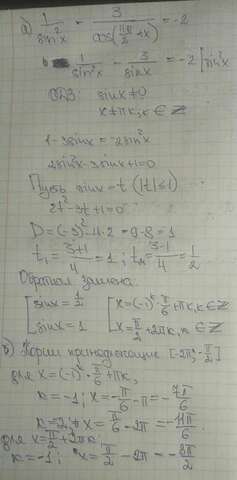 а) 1/sin²x - 3/cos(11π/2+x) = -2
1/sin²x - 3/sinx = -2 | sin²x
ОДЗ sinx ≠ 0
x ≠ πk, k ∈ Z
1-3sinx = -2sin²x
2sin²x-3sinx+1=0
Пусть sinx = t (|t| ≤ 1)
2t²-3t+1=0
D = (-3)²-4·2 = 9-8 = 1
t₁ = (3+1)/4 = 1; t₂ = (3-1)/4 = 1/2
Обратная замена:
[ sinx = 1/2 [ x = (-1)^k · π/6 + πk, k ∈ Z
[ sinx = 1 [ x = π/2 + 2πk, k ∈ Z
б) Корни принадлежащие [-2π; -π/2]
для x = (-1)^k · π/6 + πk,
k = -1; x = -π/6 - π = -7π/6
k = -2; x = π/6 - 2π = -11π/6
для x = π/2 + 2πk
k = -1; x = π/2 - 2π = -3π/2